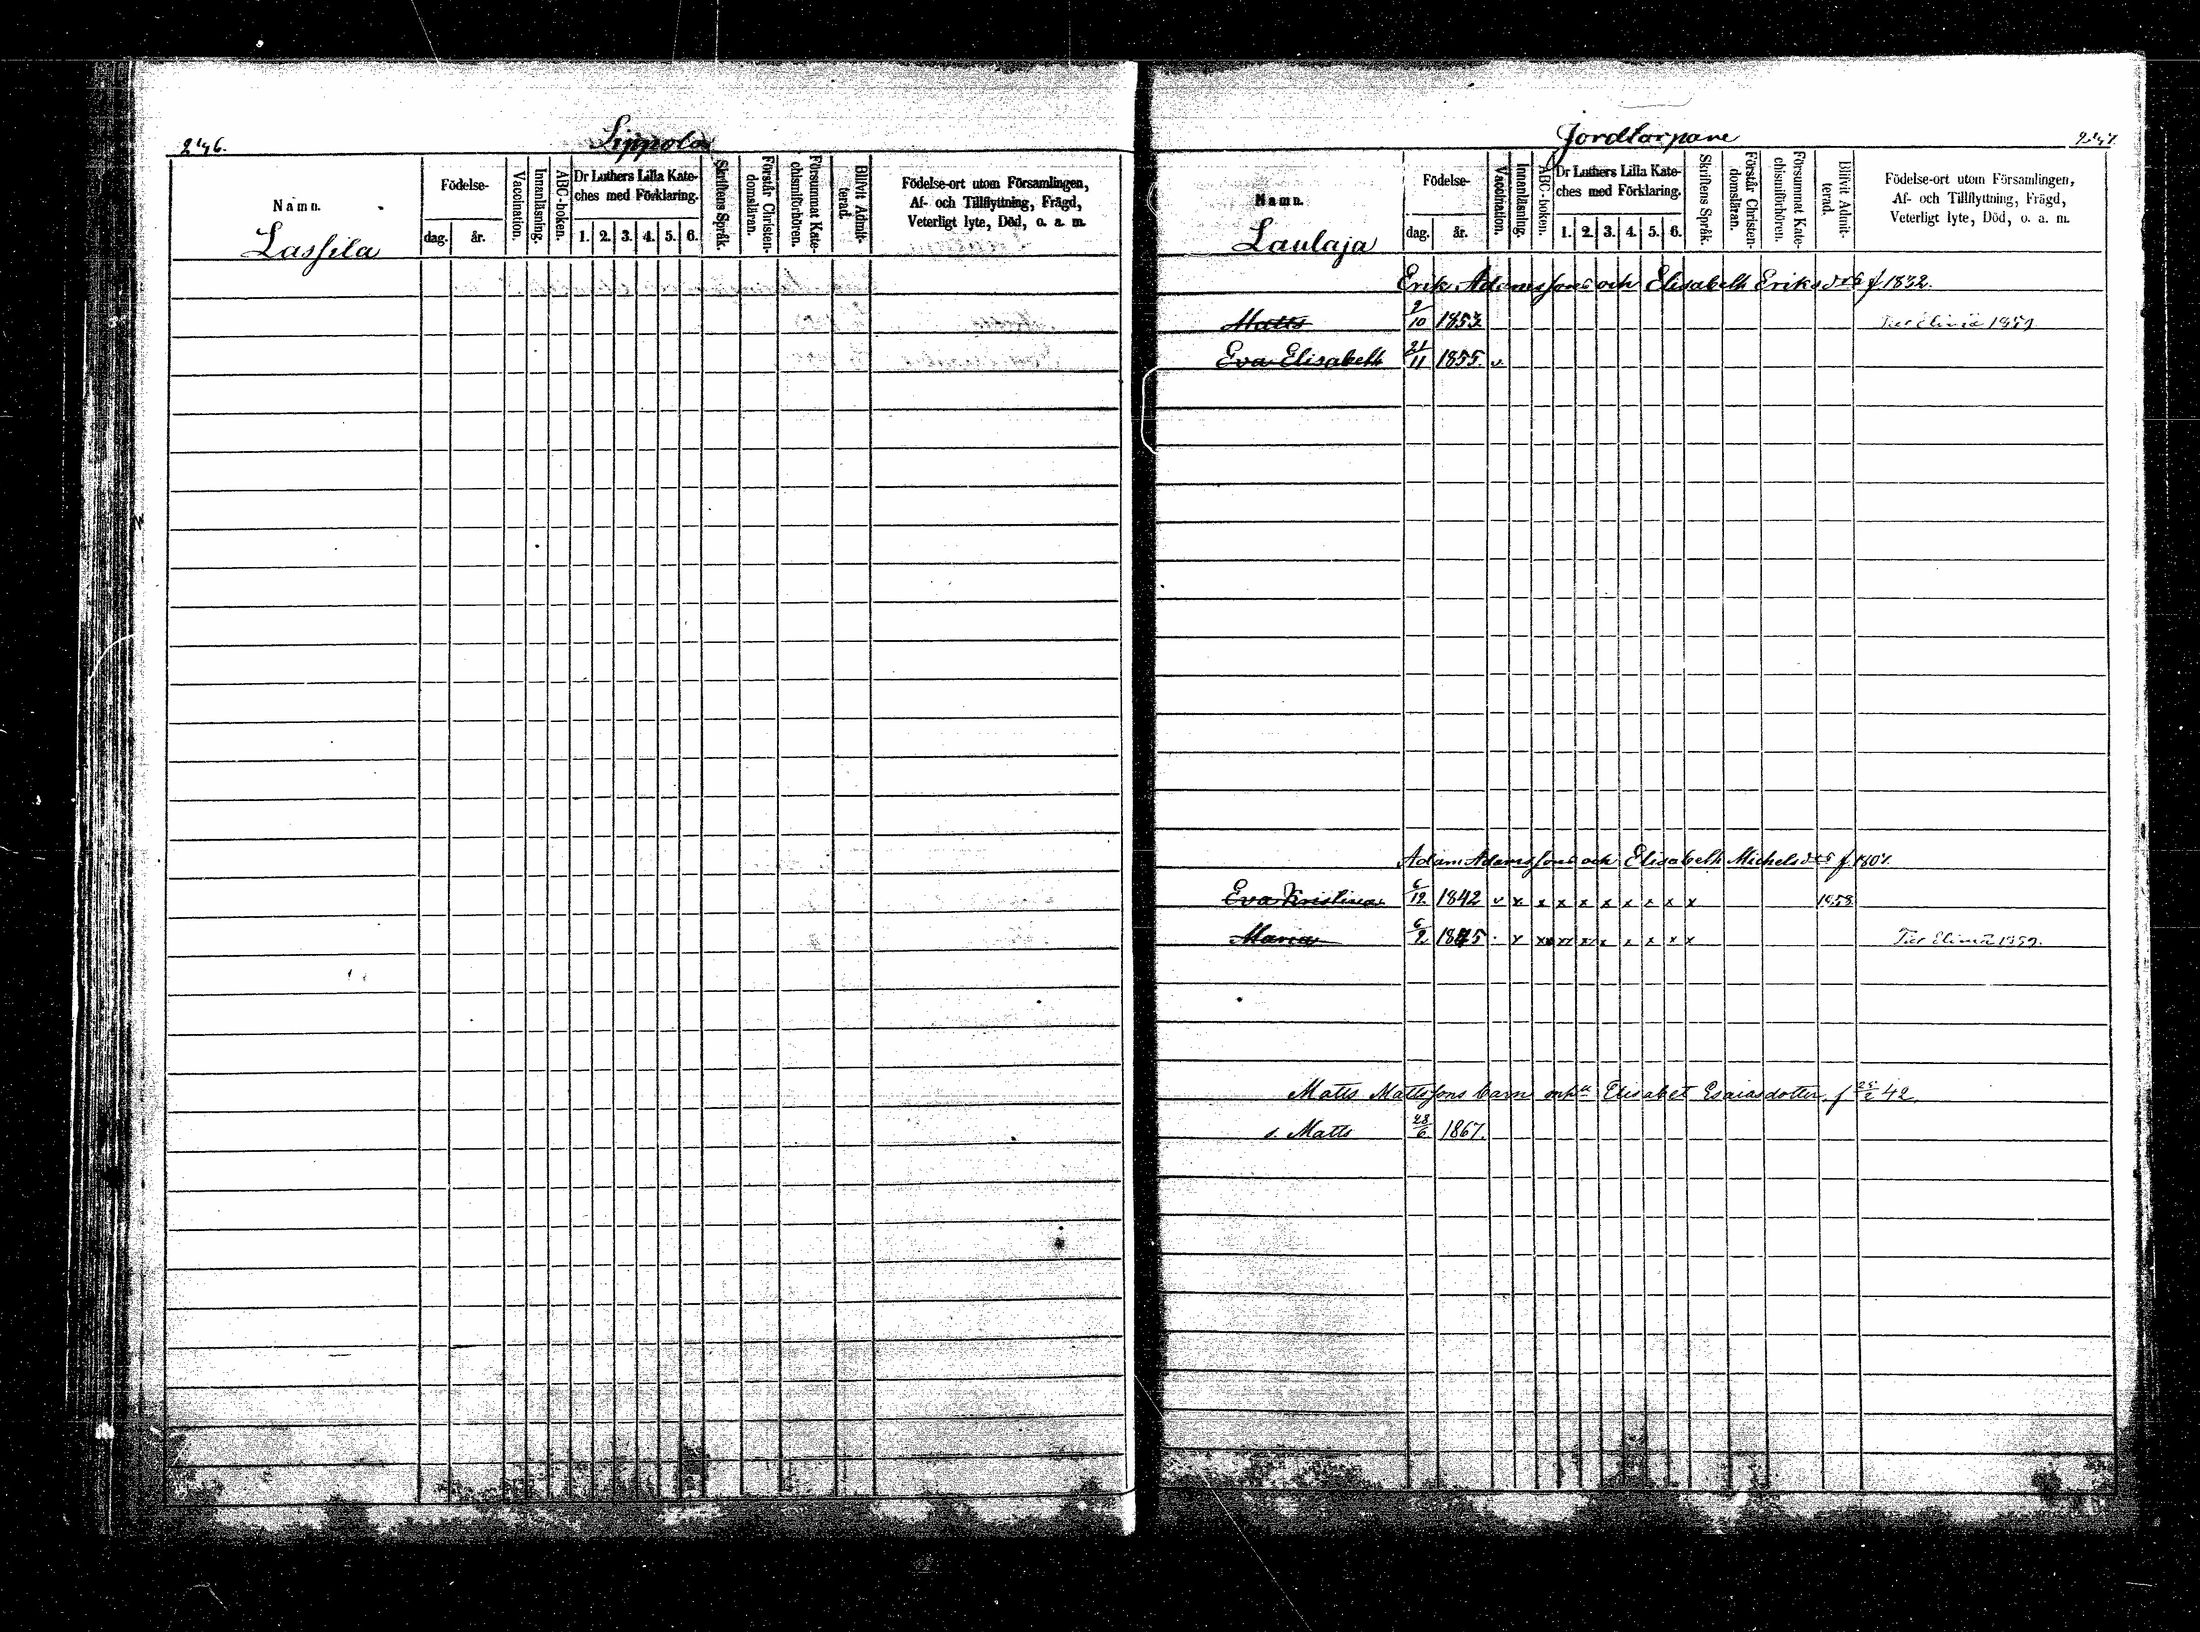 246.
Lippola
Namn.
Födelse-
dag.
år.
Vaccination.
Innanläsning.
ABC-boken.
Dr Luthers Lilla Kate-
ches med Förklaring.
1. 2. 3. 4. 5. 6.
Skriftens Språk.
Förstår Christen-
domsläran.
Försummat Kate-
chismiförhören.
Blifvit Admit-
terad.
Födelse-ort utom Församlingen,
Af- och Tillflyttning, Frägd,
Veterligt lyte, Död, o. a. m.
Lassila
Jordtorpare
247.
Namn.
Födelse-
dag.
år.
Vaccination.
Innanläsning.
ABC-boken.
Dr Luthers Lilla Kate-
ches med Förklaring.
1. 2. 3. 4. 5. 6.
Skriftens Språk.
Förstår Christen-
domsläran.
Försummat Kate-
chismiförhören.
Blifvit Admit-
terad.
Födelse-ort utom Församlingen,
Af- och Tillflyttning, Frägd,
Veterligt lyte, Död, o. a. m.
Laulaja
Erik Adamssons och Elisabeth Eriksdotr f. 1832.
Matts 2/10 1853. Till Elimä 1859
Eva Elisabeth 21/11 1855. v
Adam Adamssons och Elisabeth Michelsdotr f. 1807.
Eva Kristina 6/12 1842 v x x x x x x x x x 1858
Maria 6/2 1845 x xx xx xx x x x x x Till Elimä 1859.
Matts Mattssons barn och Elisabet Esaiasdotter f 25/2 42.
s. Matts 28/6 1867.